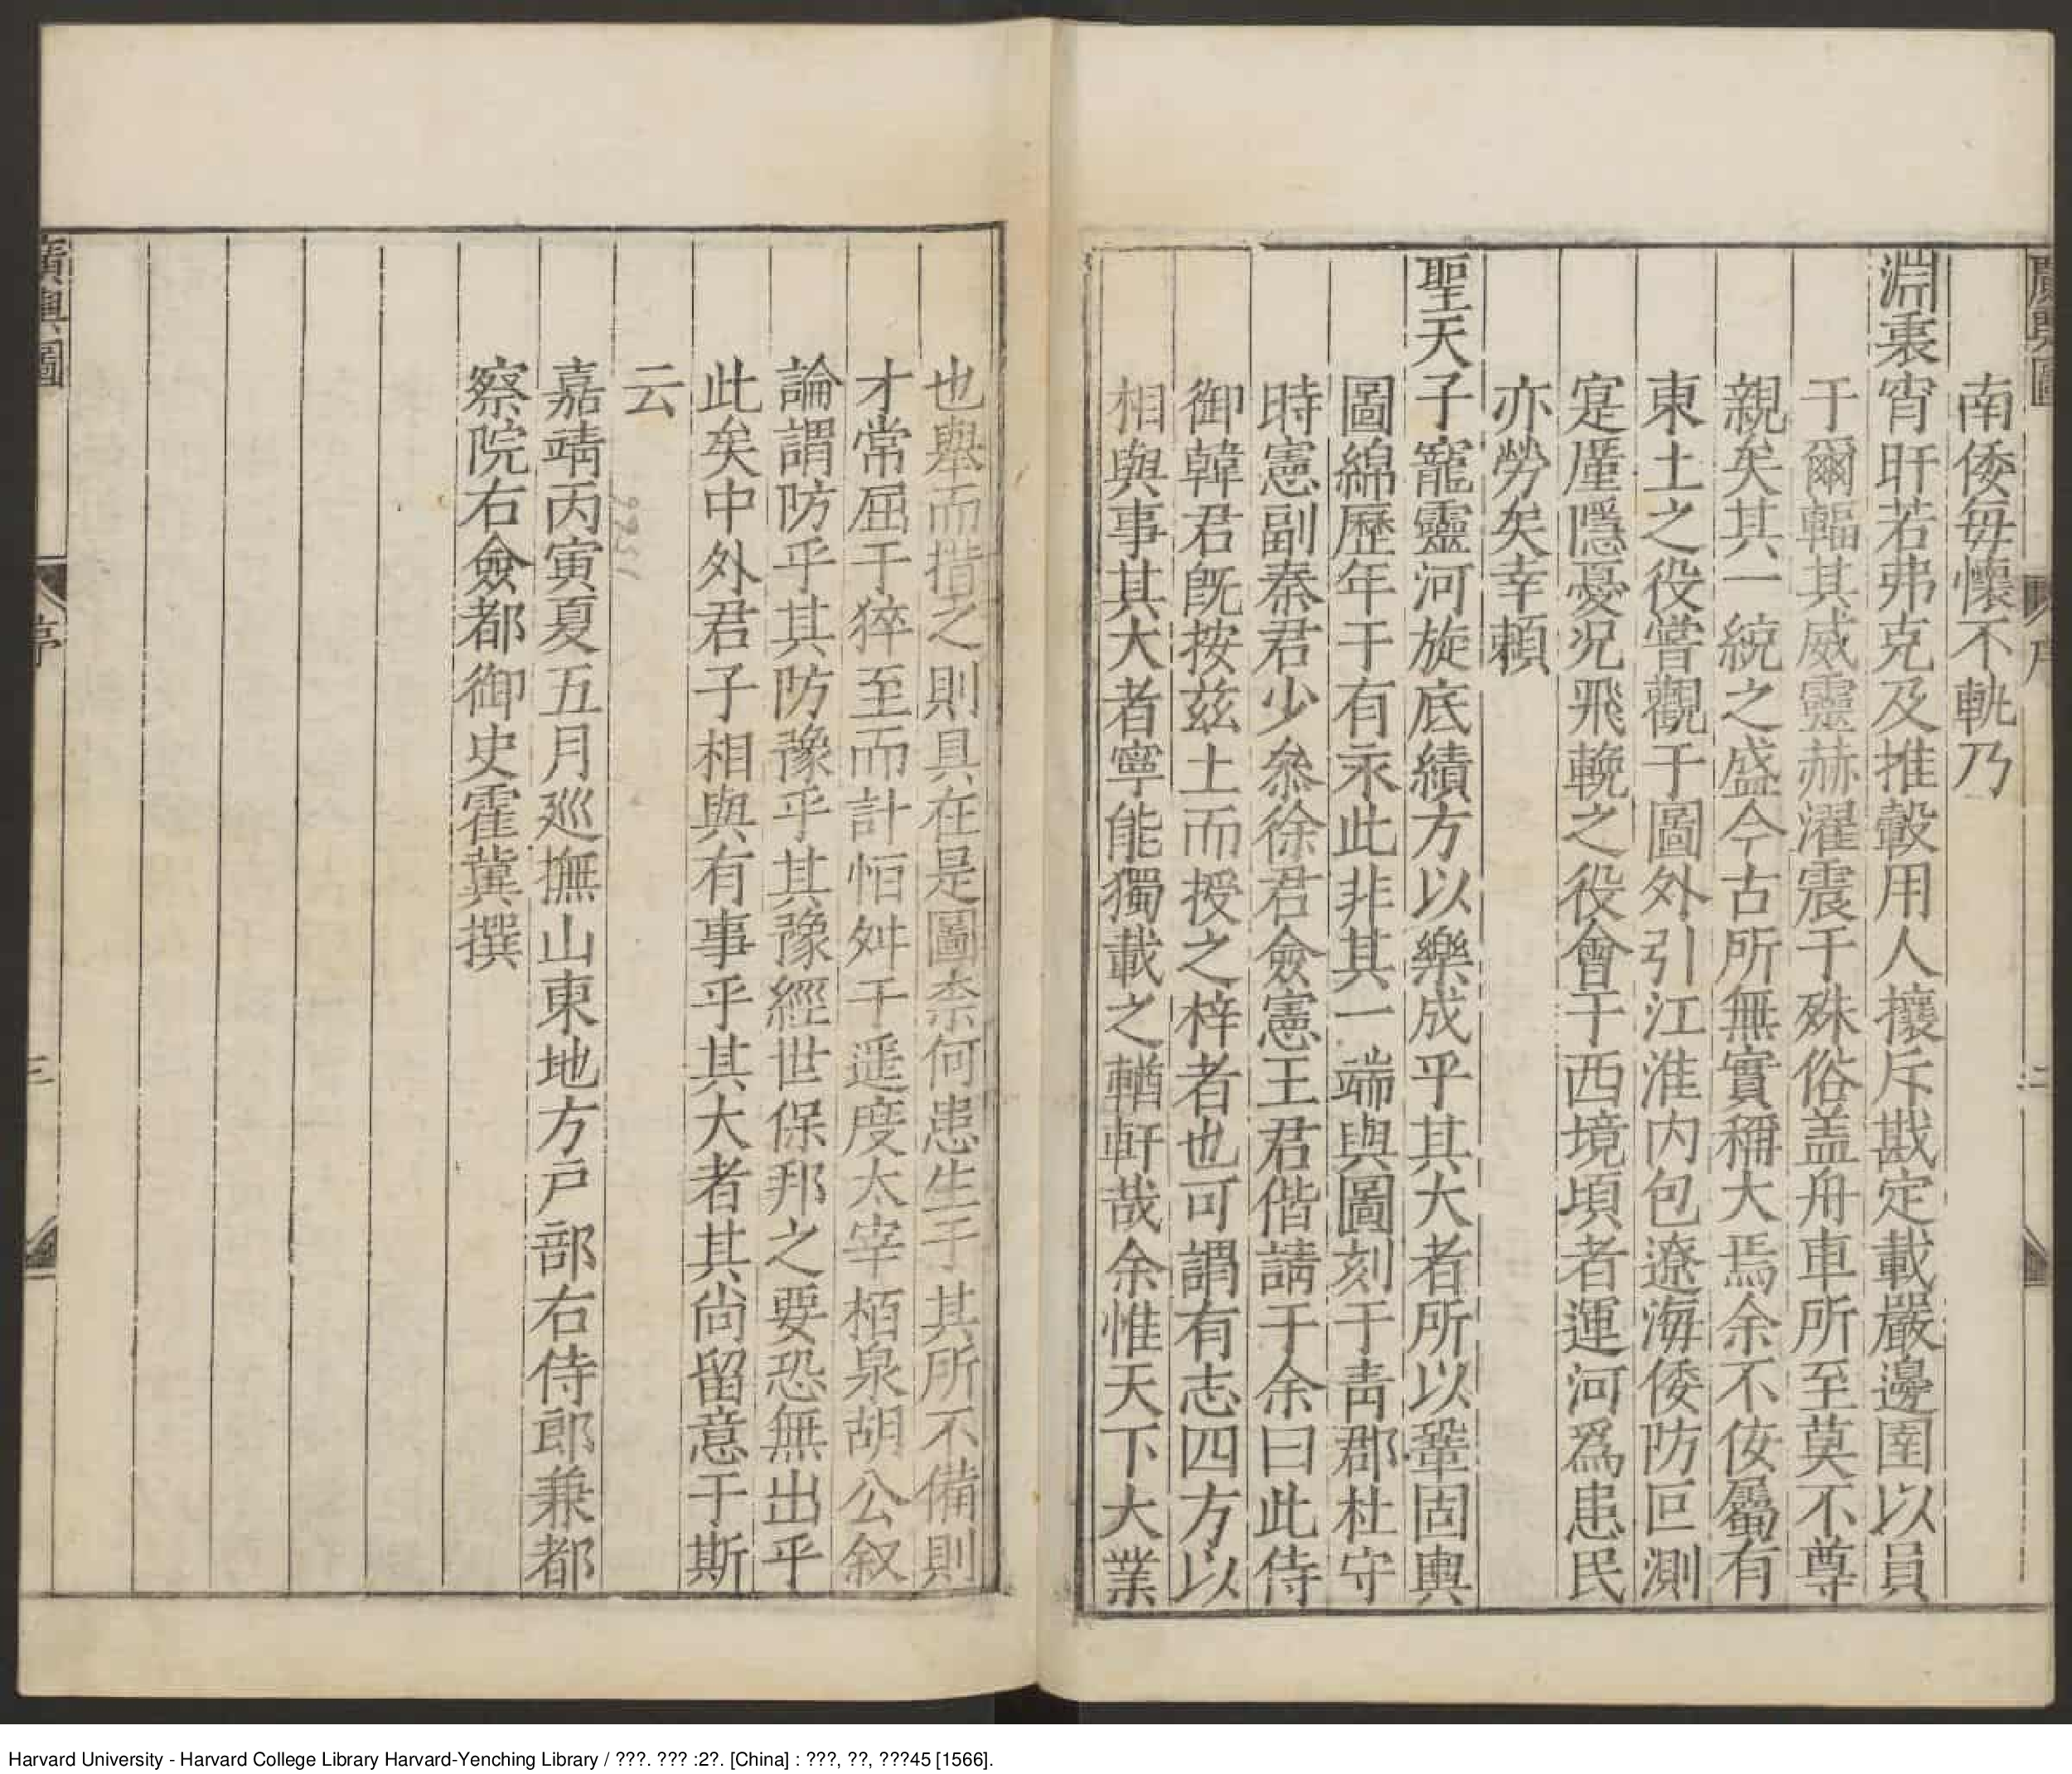 廣輿圖
序
二
南倭每懷不軌乃
淵衷宵旰若弗克及推轂用人攘斥戡定載嚴邊圉以員
于爾輻其威靈赫濯震于殊俗盖舟車所至莫不尊
親矣其一統之盛今古所無實稱大焉余不佞屬有
東土之役嘗觀于圖外引江淮内包遼海倭防叵測
寔厪隱憂況飛輓之役會于西境頃者運河爲患民
亦勞矣幸賴
聖天子寵靈河旋底績方以樂成乎其大者所以鞏固輿
圖綿歷年于有永此非其一端與圖刻于靑郡杜守
時憲副秦君少叅徐君僉憲王君偕請于余曰此侍
御韓君旣按兹土而授之梓者也可謂有志四方以
相與事其大者寧能獨載之輶軒哉余惟天下大業
也舉而措之則具在是圖柰何患生于其所不備則
才常屈于猝至而計恒舛于遥度太宰栢泉胡公叙
論謂防乎其防豫乎其豫經世保邦之要恐無出乎
此矣中外君子相與有事乎其大者其尚留意于斯
云
嘉靖丙寅夏五月巡撫山東地方戸部右侍郎兼都
察院右僉都御史霍冀撰
廣輿圖
序
三
Harvard University - Harvard College Library Harvard-Yenching Library / ???. ??? :2?. [China] : ???, ??, ???45 [1566].